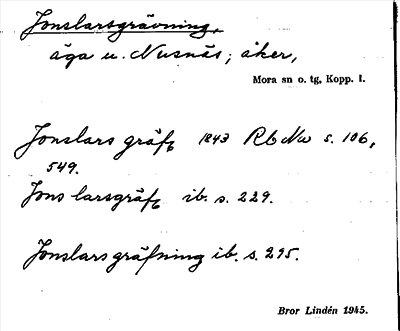 Jonslarsgrävning,
äga u. Nusnäs; åker,
Mora sn o. tg, Kopp. l.
Jonslars gräfg 1843 Rb Nu s. 106,
549.
Jons larsgräfg ib. s. 229.
Jonslars gräfning ib. s. 295.
Bror Lindén 1945.